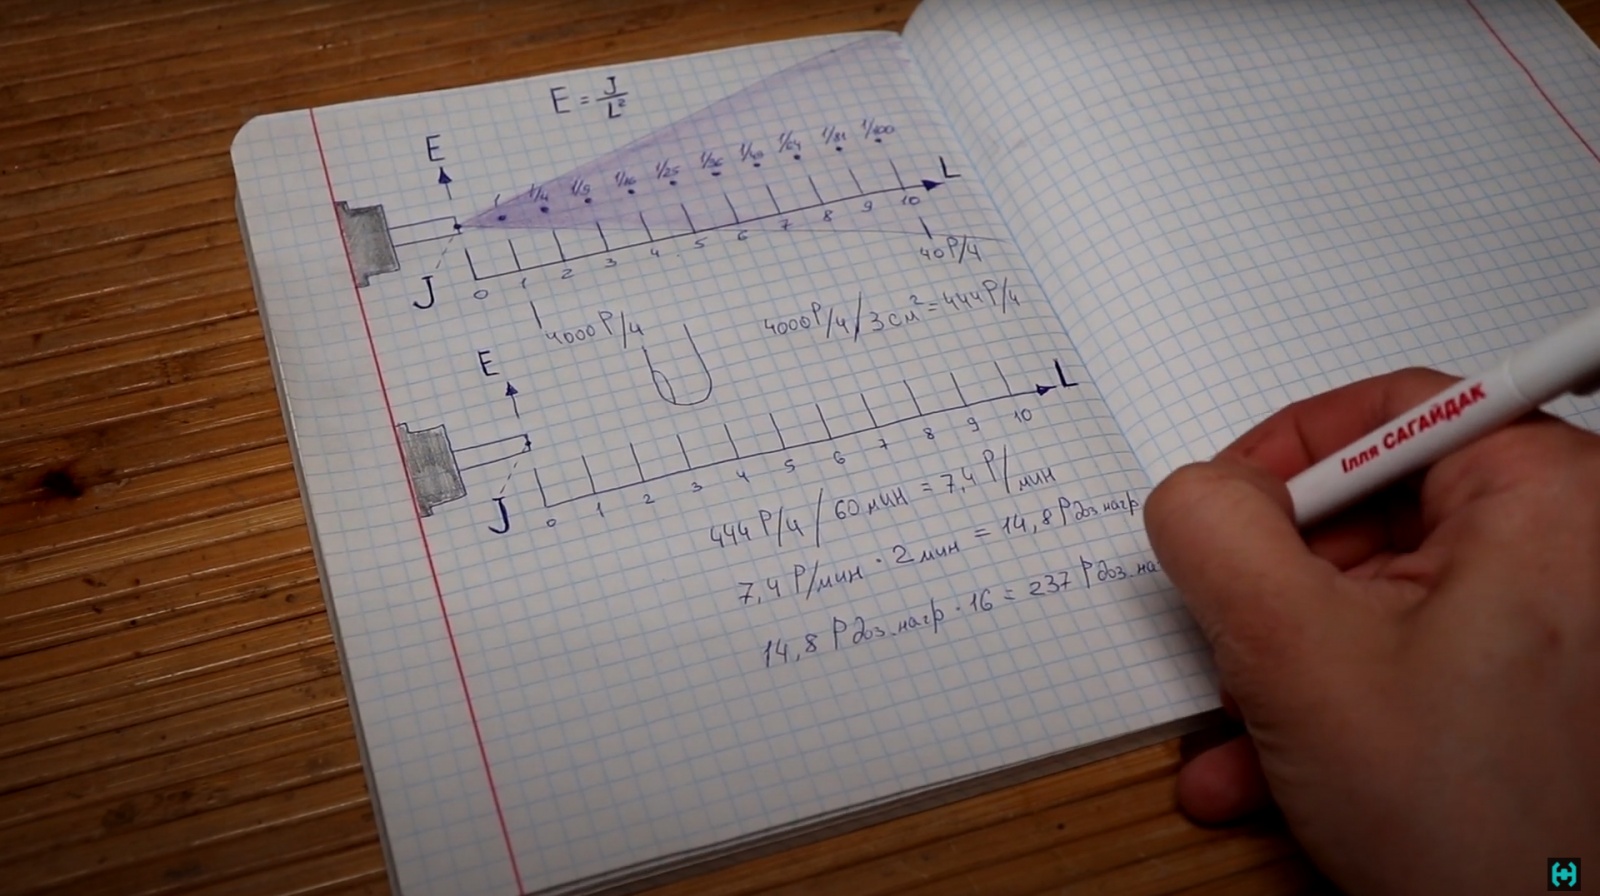 E = J/L²
E
1 1/4 1/9 1/16 1/25 1/36 1/49 1/64 1/81 1/100
L
J
0 1 2 3 4 5 6 7 8 9 10
40 Р/ч
4000 Р/ч
4000 Р/ч / 3 см² = 444 Р/ч
E
L
J
0 1 2 3 4 5 6 7 8 9 10
444 Р/ч / 60 мин = 7,4 Р/мин
7,4 Р/мин · 2 мин = 14,8 Р доз нагр
14,8 Р доз. нагр · 16 = 237 Р доз. на
Ілля САГАЙДАК